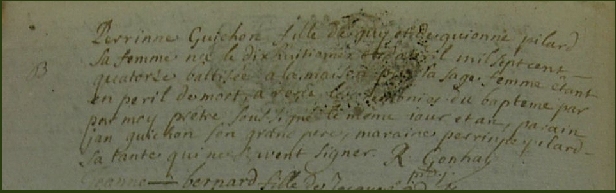 B
Perrinne Guichon fille de guy et de guionne pilard
sa femme née le dixhuitiesme d'avril mil sept cent
quatorze battisée a la maison par la sage femme étant
en peril de mort, a receu les ceremonies du bapteme par
par moy prêtre soussigné le même iour et an, parain
jan guichon son grand pere, maraine perrinne pilard
sa tante qui ne savent signer. R. Gonhay
jeanne bernard fille de Jacques